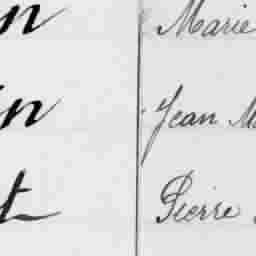 n Marie
in Jean M
t Pierre